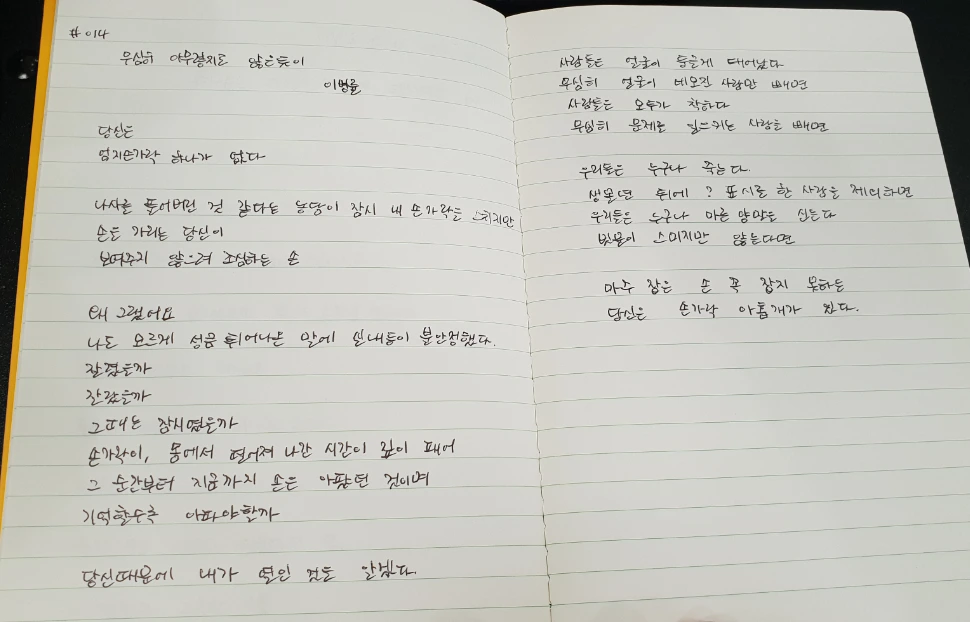 #014
무심히 아무렇지도 않은듯이
이병률
당신은
엄지손가락 하나가 없다
나사를 풀어버린 것 같다는 농담이 잠시 내 손가락을 스치지만
손을 가리는 당신이
보여주지 않으려 조심하는 손
왜 그랬어요
나도 모르게 성큼 튀어나온 말에 실내등이 불안정했다.
잘렸을까
잘랐을까
그때는 잠시였을까
손가락이, 몸에서 떨어져 나간 시간이 깊이 패어
그 순간부터 지금까지 손은 아팠던 것이며
기억할수록 아파야할까
당신때문에 내가 절인 것도 알겠다.
사람들은 얼굴이 둥글게 태어났다
무심히 얼굴이 네모진 사람만 빼면
사람들은 모두가 착하다
무심히 문제를 일으키는 사람을 빼면
우리들은 누구나 죽는다.
생몰년 뒤에 ? 표시를 한 사람을 제외하면
우리들은 누구나 마른 양말을 신는다
빗물이 스미지만 않는다면
마주 잡은 손 꼭 잡지 못하는
당신은 손가락 아홉개가 있다.